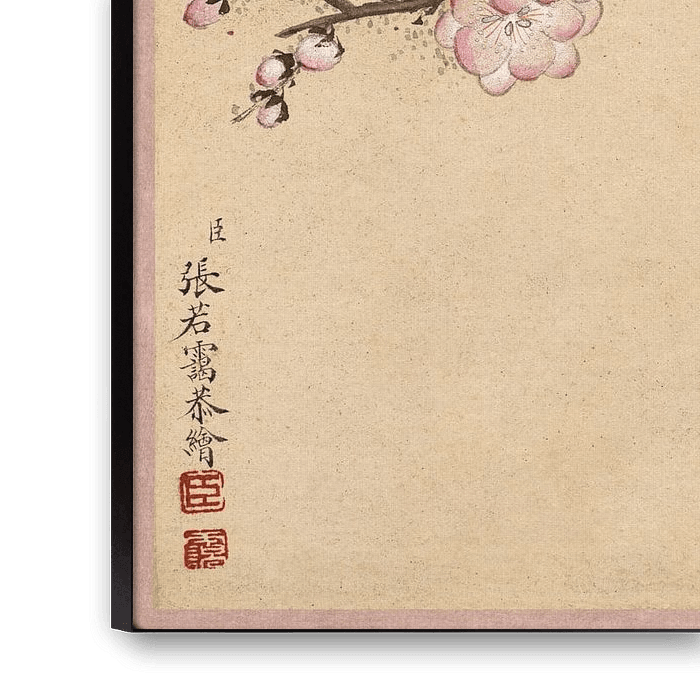 臣張若靄恭繪
臣
靄